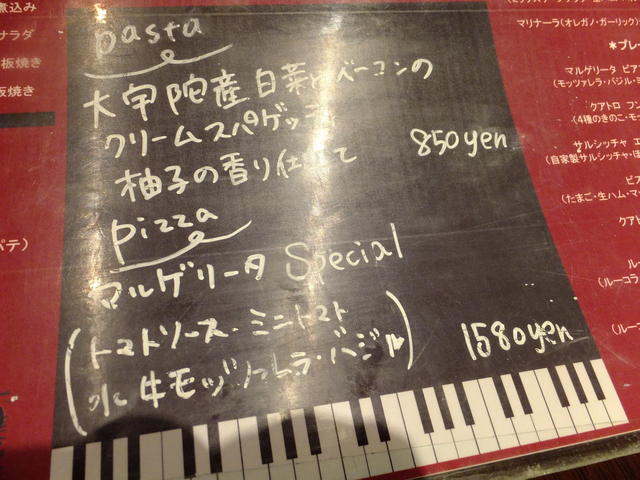 煮込み
サラダ
板焼き
板焼き
パテ）
pasta
大宇陀産白菜とベーコンの
クリームスパゲッティ
柚子の香り仕立て
850yen
pizza
マルゲリータ Special
(トマトソース・ミニトマト
水牛モッツァレラ・バジル)
1580yen
マリナーラ(オレガノ・ガーリック)
*プレ
マルゲリータ ピア
(モッツァレラ・バジル・ミ
クアトロ フン
(4種のきのこ・モ
サルシッチャ エ
(自家製サルシッチャ・ほ
ピス
(たまご・生ハム・マッ
クアト
ルー
(ルーコラ
(ルーコ